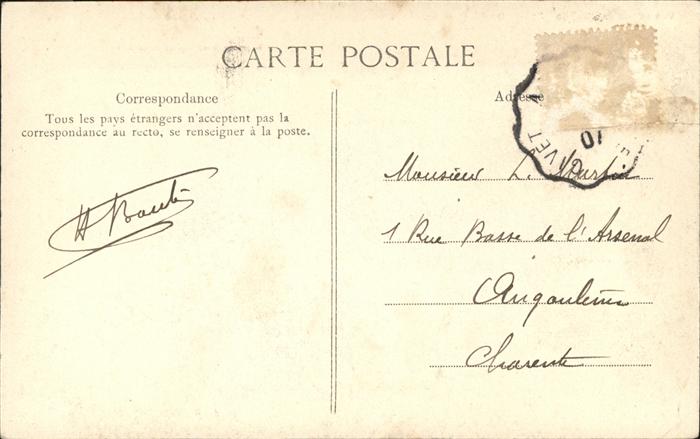 CARTE POSTALE
Correspondance
Tous les pays étrangers n'acceptent pas la
correspondance au recto, se renseigner à la poste.
Adresse
VET A
10
Monsieur L.
1 Rue Basse de l'Arsenal
Angoulême
Charente